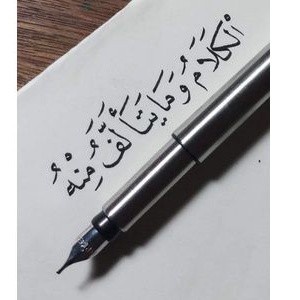 اَلْكَلَامُ وَمَا يَتَأَلَّفُ مِنْهُ